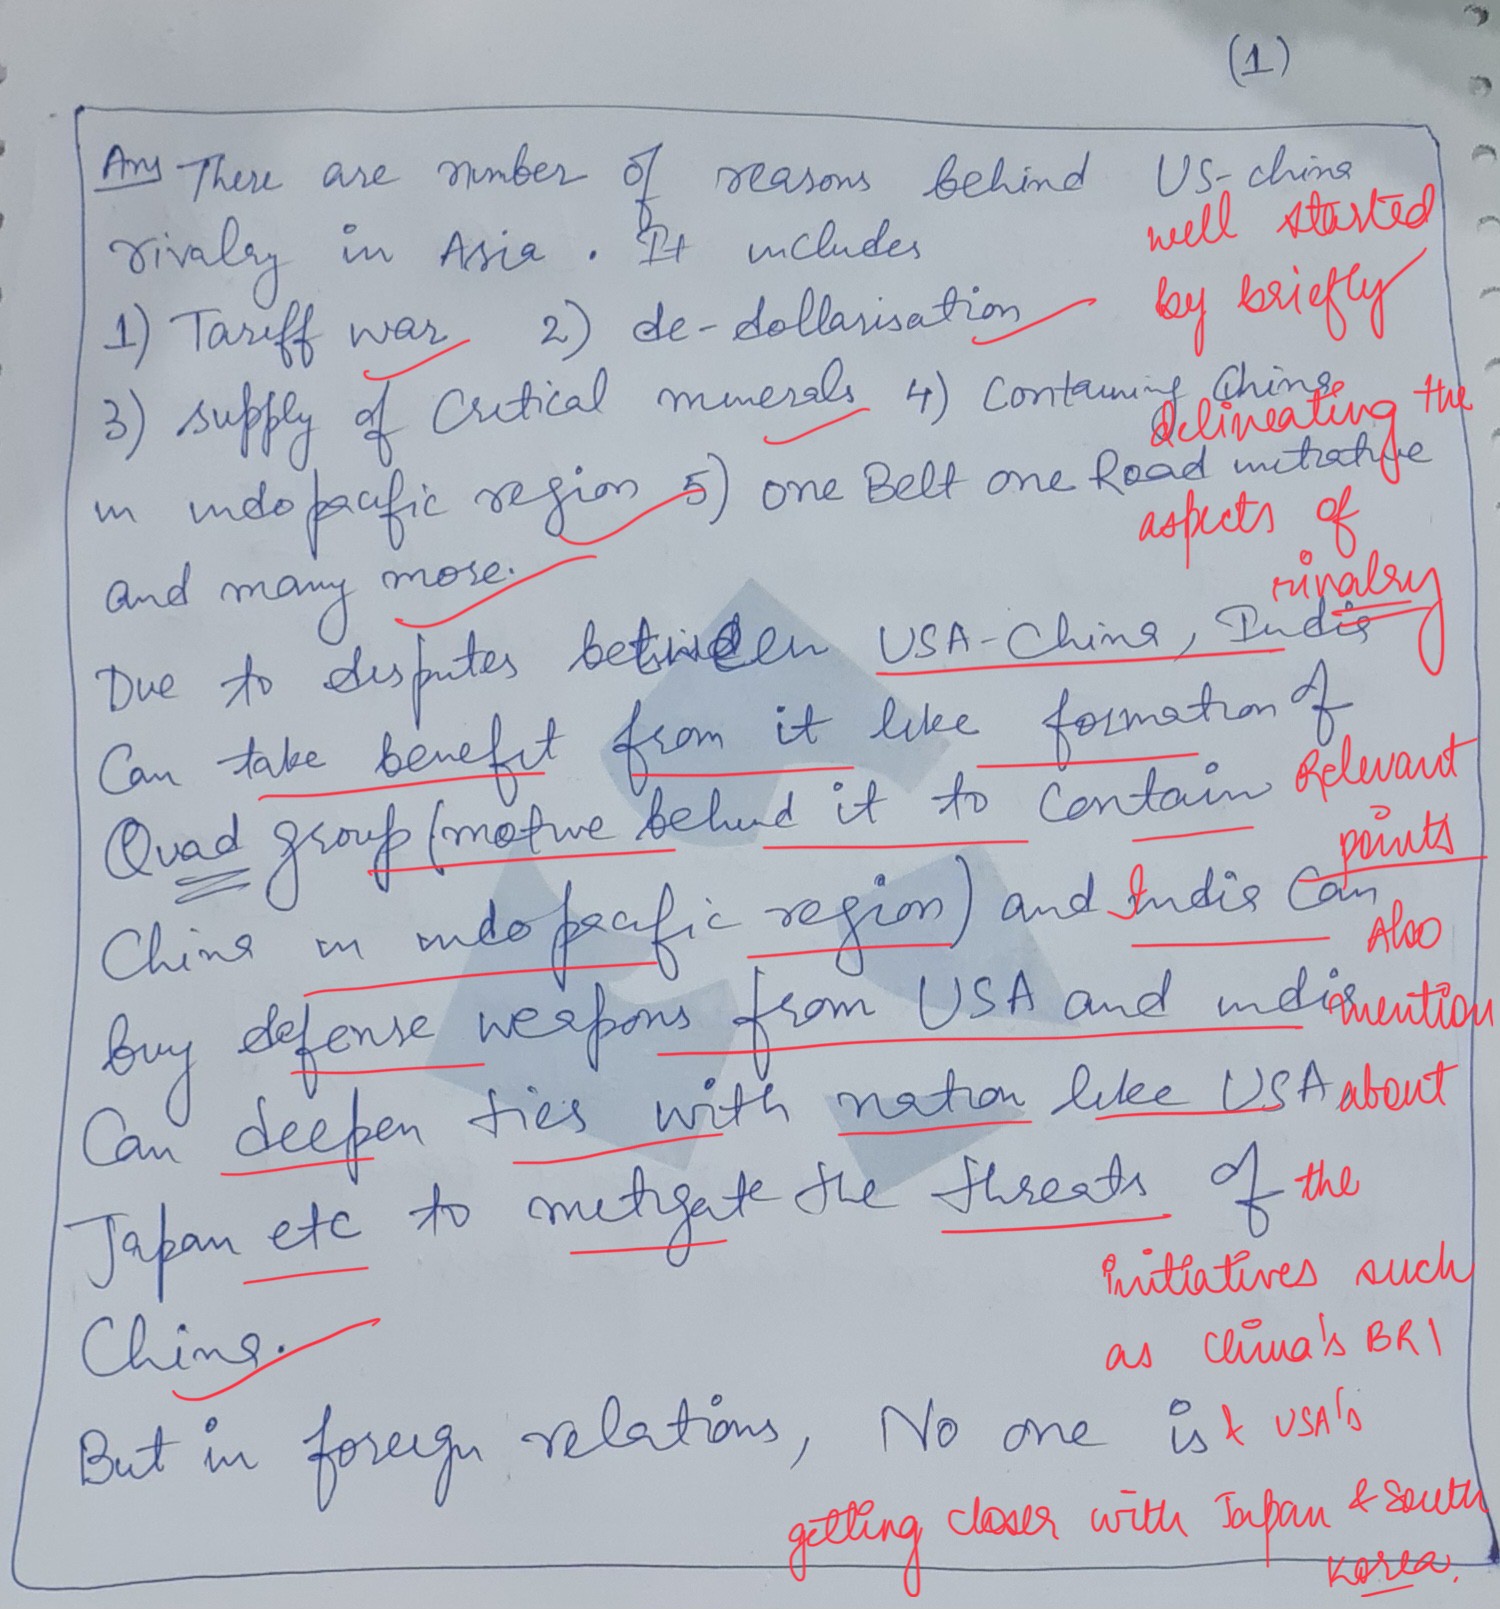 (1)
Ans There are number of reasons behind US-China
rivalry in Asia. It includes
well started
1) Tariff war 2) de-dollarisation
by briefly
3) supply of Critical minerals 4) Containing China
delineating the
in indopacific region 5) one Belt one Road initiative
aspects of
and many more.
rivalry
Due to disputes between USA-China, India
Can take benefit from it like formation of
Relevant
Quad group (motive behind it to contain
points
China in indopacific region) and India Can
Also
buy defense weapons from USA and india
mention
Can deepen ties with nation like USA
about
Japan etc to mitigate the threats of
the
initiatives such
China.
as China's BRI
But in foreign relations, No one is
& USA's
getting closer with Japan & South
Korea.